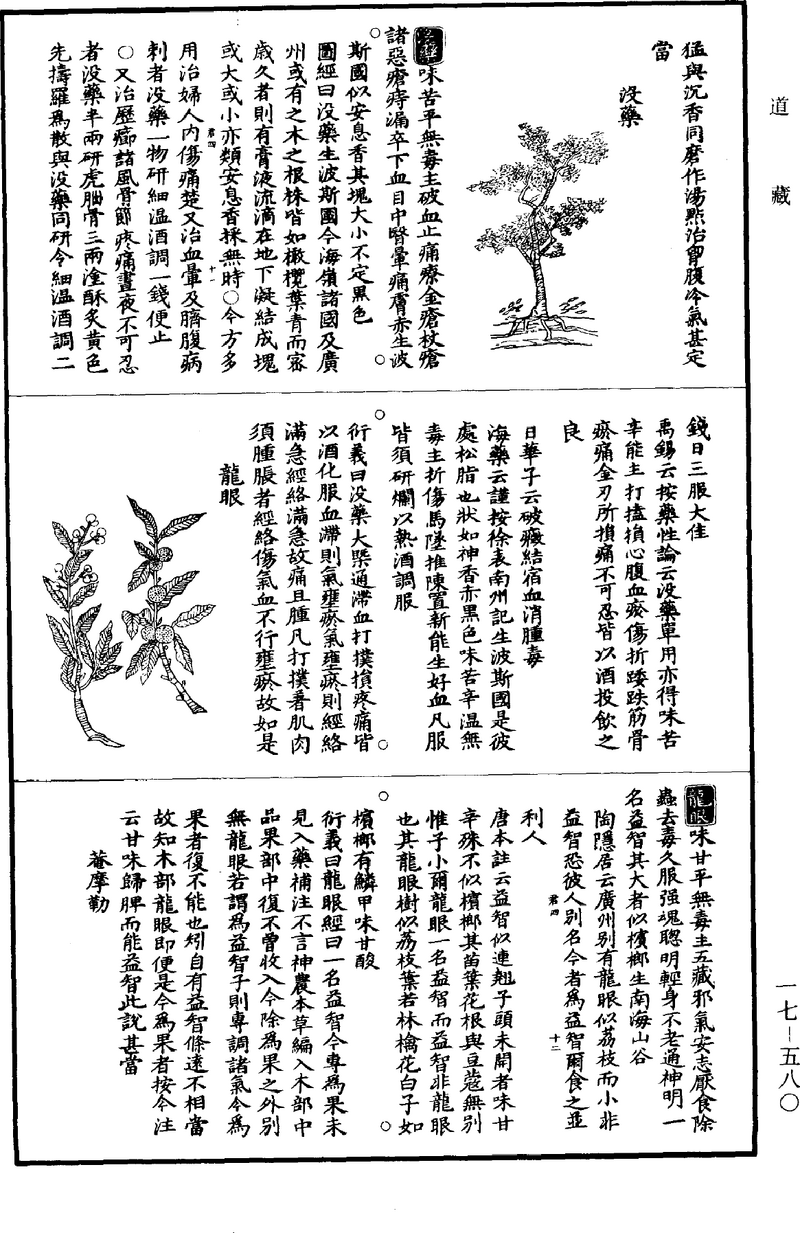 道藏
猛與沉香同磨作湯點治曾腹冷氣甚定
當
沒藥
沒藥味苦平無毒主破血止痛療金瘡杖瘡
諸惡瘡痔漏卒下血目中瞖暈痛膚赤生波
斯國似安息香其塊大小不定黑色
圖經曰沒藥生波斯國今海嶺諸國及廣
州或有之木之根株皆如橄欖葉青而密
歲久者則有膏液流滴在地下凝結成塊
或大或小亦類安息香採無時○今方多
君四
十一
用治婦人内傷痛楚又治血暈及臍腹㽲
刺者沒藥一物研細温酒調一錢便止
○又治歷癤諸風骨節疼痛晝夜不可忍
者沒藥半兩研虎脛骨三兩塗酥炙黄色
先擣羅爲散與沒藥同研令細温酒調二
錢日三服大佳
禹錫云按藥性論云沒藥單用亦得味苦
辛能主打搕損心腹血瘀傷折踒跌筋骨
瘀痛金刃所損痛不可忍皆以酒投飲之
良
日華子云破癥結宿血消腫毒
海藥云謹按徐表南州記生波斯國是彼
處松脂也狀如神香赤黑色味苦辛温無
毒主折傷馬墜推陳置新能生好血凡服
皆須研爛以熱酒調服
衍義曰沒藥大槩通滯血打撲損疼痛皆
以酒化服血滯則氣壅瘀氣壅瘀則經絡
滿急經絡滿急故痛且腫凡打撲著肌肉
須腫脹者經絡傷氣血不行壅瘀故如是
龍眼
龍眼味甘平無毒主五藏邪氣安志厭食除
蟲去毒久服强魂聰明輕身不老通神明一
名益智其大者似檳榔生南海山谷
陶隱居云廣州别有龍眼似荔枝而小非
益智恐彼人别名今者爲益智爾食之並
君四
十二
利人
唐本註云益智似連翹子頭未開者味甘
辛殊不似檳榔其苗葉花根與豆蔻無别
惟子小爾龍眼一名益智而益智非龍眼
也其龍眼樹似荔枝葉若林檎花白子如
檳榔有鱗甲味甘酸
衍義曰龍眼經曰一名益智今專爲果未
見入藥補注不言神農本草編入木部中
品果部中復不曾收入今除爲果之外别
無龍眼若謂爲益智子則專調諸氣今爲
果者復不能也矧自有益智條遠不相當
故知木部龍眼即便是今爲果者按今注
云甘味歸脾而能益智此說甚當
菴摩勒
一七－五八〇